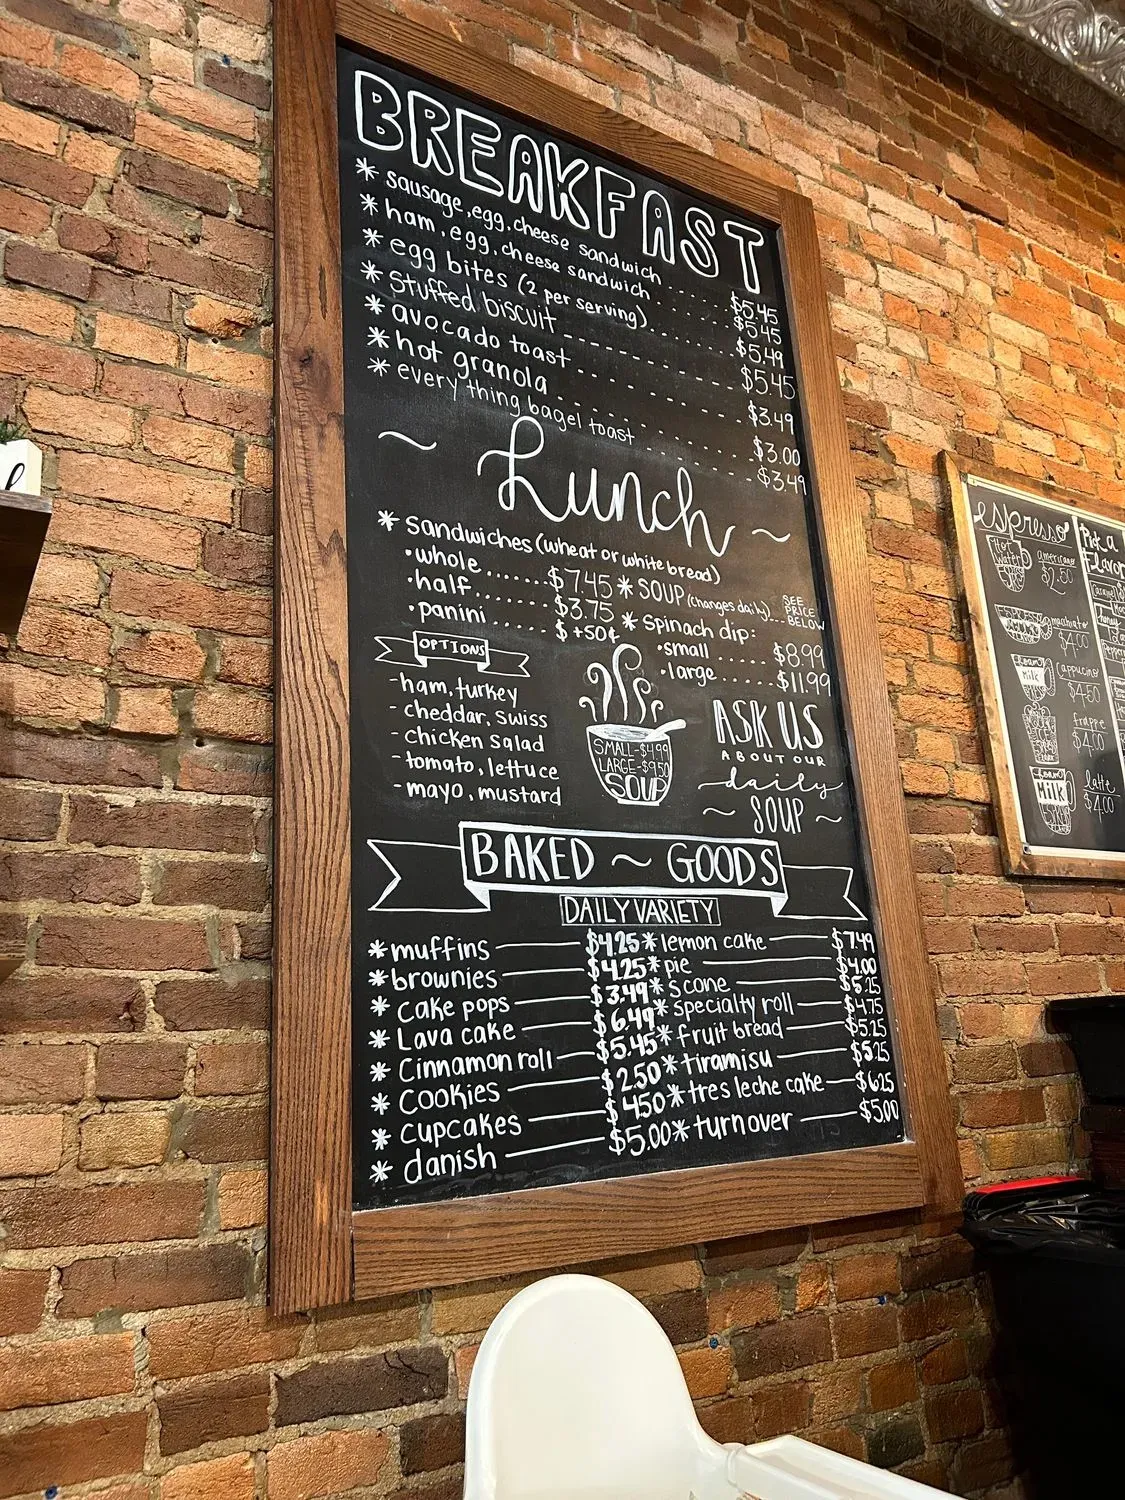 BREAKFAST
* sausage, egg, cheese sandwich ..... $5.45
* ham, egg, cheese sandwich ..... $5.45
* egg bites (2 per serving)..... $5.49
* Stuffed biscuit ----- $5.45
* avocado toast ----- $3.49
* hot granola ..... $3.00
* every thing bagel toast ..... $3.49
~ Lunch ~
* Sandwiches (wheat or white bread)
• whole ....... $7.45
• half ....... $3.75
• panini ..... $ +50¢
* SOUP (changes daily)... SEE PRICE BELOW
* Spinach dip:
• small ..... $8.99
• large ..... $11.99
OPTIONS
- ham, turkey
- cheddar, swiss
- chicken salad
- tomato, lettuce
- mayo, mustard
SMALL-$4.99
LARGE-$9.50
SOUP
ASK US
ABOUT OUR
daily
~ SOUP ~
BAKED ~ GOODS
DAILY VARIETY
* muffins — $4.25
* brownies — $4.25
* cake pops — $3.49
* Lava cake — $6.49
* Cinnamon roll — $5.45
* cookies — $2.50
* cupcakes — $4.50
* danish — $5.00
* lemon cake — $7.49
* pie — $4.00
* scone — $5.25
* specialty roll — $4.75
* fruit bread — $5.25
* tiramisu — $5.25
* tres leche cake — $6.25
* turnover — $5.00
espresso
Hot Water
americano
$2.50
ESPRESSO
macchiato
$4.00
foam
Milk
cappucino
$4.50
frappe
$4.00
foam
Milk
latte
$4.00
Pick a
Flavor
Caramel
honey